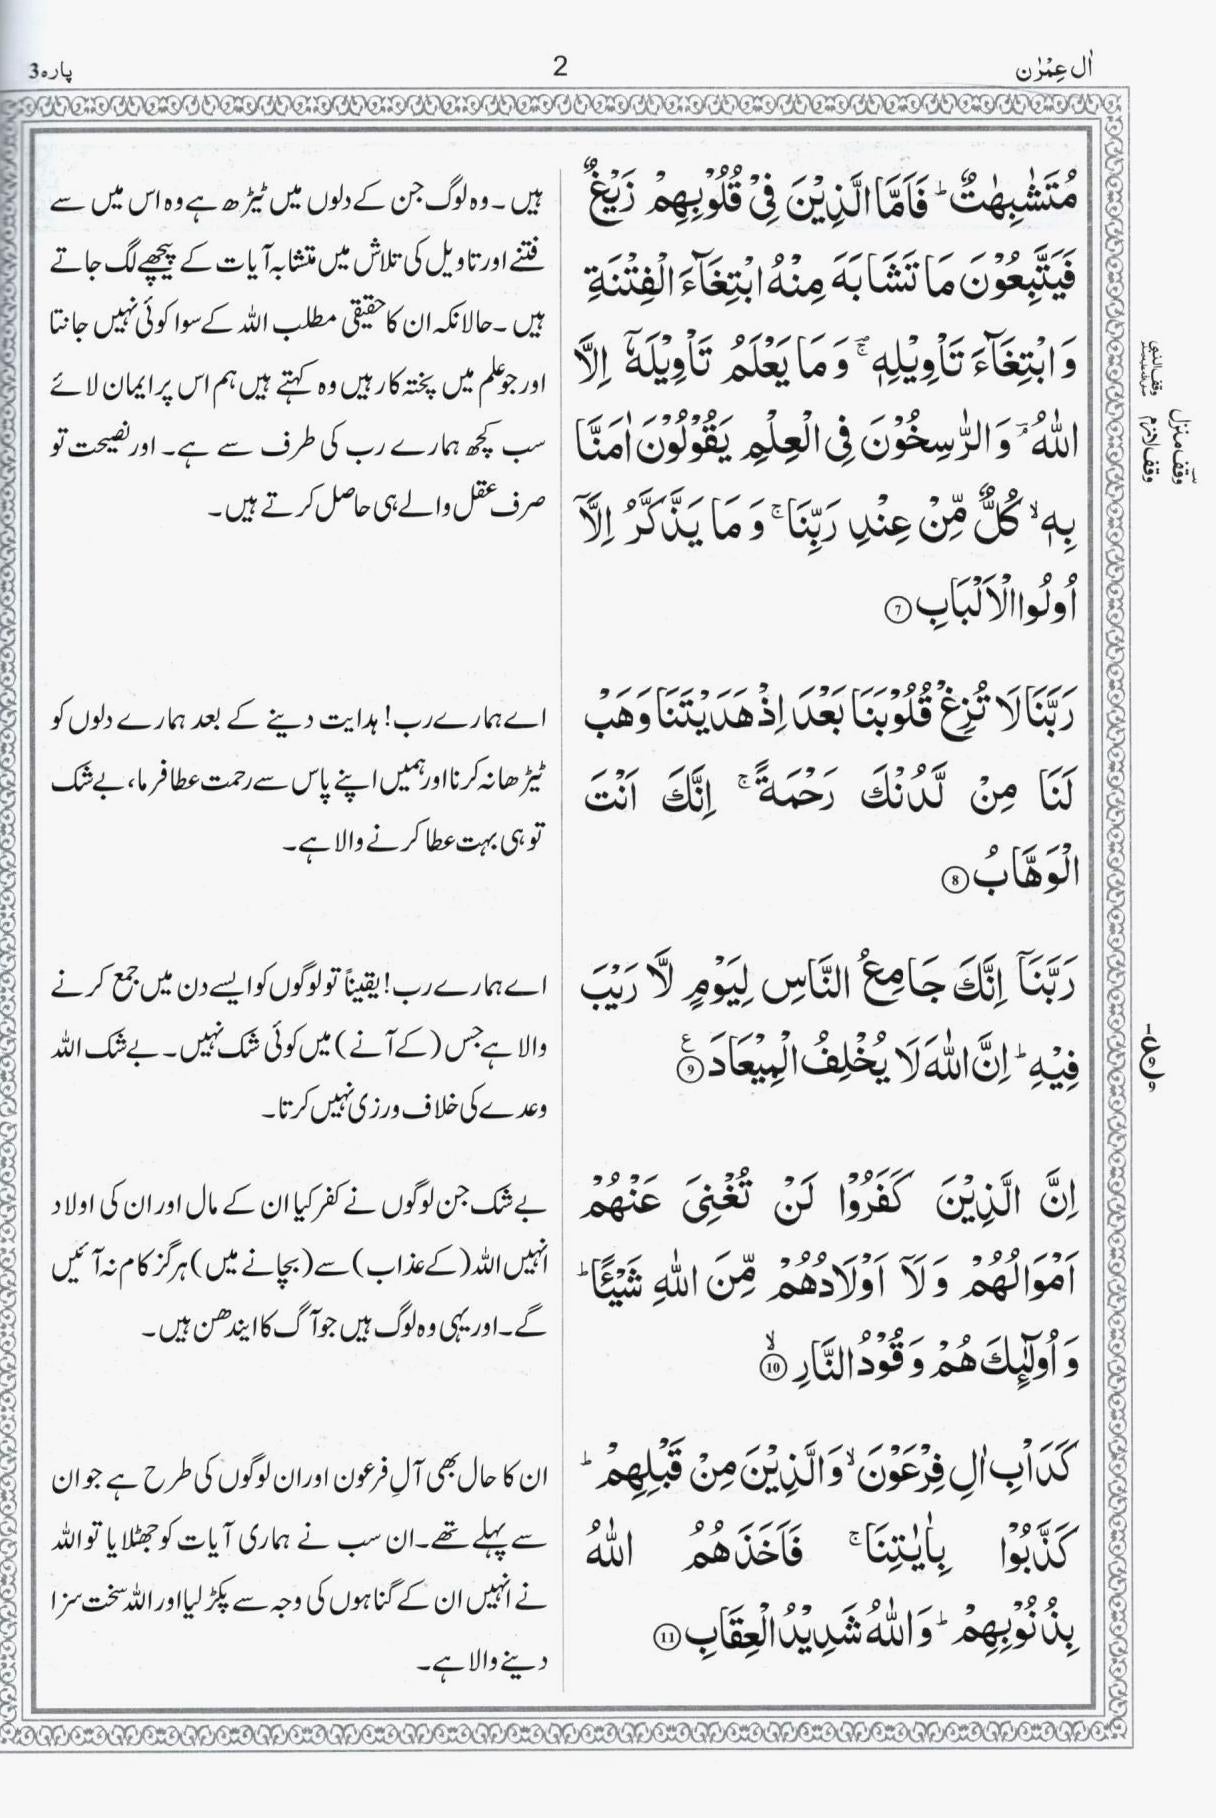 اٰل عِمْرٰن
2
پارہ3
مُتَشٰبِهٰتٌ ؕ فَاَمَّا الَّذِیْنَ فِیْ قُلُوْبِهِمْ زَیْغٌ
فَیَتَّبِعُوْنَ مَا تَشَابَهَ مِنْهُ ابْتِغَآءَ الْفِتْنَةِ
وَ ابْتِغَآءَ تَاْوِیْلِهٖ ۚ وَ مَا یَعْلَمُ تَاْوِیْلَهٗۤ اِلَّا
اللّٰهُ ۘ وَ الرّٰسِخُوْنَ فِی الْعِلْمِ یَقُوْلُوْنَ اٰمَنَّا
بِهٖ ۙ كُلٌّ مِّنْ عِنْدِ رَبِّنَا ۚ وَ مَا یَذَّكَّرُ اِلَّاۤ
اُولُوا الْاَلْبَابِ 7
رَبَّنَا لَا تُزِغْ قُلُوْبَنَا بَعْدَ اِذْ هَدَیْتَنَا وَ هَبْ
لَنَا مِنْ لَّدُنْكَ رَحْمَةً ۚ اِنَّكَ اَنْتَ
الْوَهَّابُ 8
رَبَّنَاۤ اِنَّكَ جَامِعُ النَّاسِ لِیَوْمٍ لَّا رَیْبَ
فِیْهِ ؕ اِنَّ اللّٰهَ لَا یُخْلِفُ الْمِیْعَادَ 9
اِنَّ الَّذِیْنَ كَفَرُوْا لَنْ تُغْنِیَ عَنْهُمْ
اَمْوَالُهُمْ وَ لَاۤ اَوْلَادُهُمْ مِّنَ اللّٰهِ شَیْـًٔا ؕ
وَ اُولٰٓىِٕكَ هُمْ وَ قُوْدُ النَّارِ 10
كَدَاْبِ اٰلِ فِرْعَوْنَ ۙ وَ الَّذِیْنَ مِنْ قَبْلِهِمْ ؕ
كَذَّبُوْا بِاٰیٰتِنَا ۚ فَاَخَذَهُمُ اللّٰهُ
بِذُنُوْبِهِمْ ؕ وَ اللّٰهُ شَدِیْدُ الْعِقَابِ 11
ہیں۔ وہ لوگ جن کے دلوں میں ٹیڑھ ہے وہ اس میں سے
فتنے اور تاویل کی تلاش میں متشابہ آیات کے پیچھے لگ جاتے
ہیں۔ حالانکہ ان کا حقیقی مطلب اللہ کے سوا کوئی نہیں جانتا
اور جو علم میں پختہ کار ہیں وہ کہتے ہیں ہم اس پر ایمان لائے
سب کچھ ہمارے رب کی طرف سے ہے۔ اور نصیحت تو
صرف عقل والے ہی حاصل کرتے ہیں۔
اے ہمارے رب! ہدایت دینے کے بعد ہمارے دلوں کو
ٹیڑھا نہ کرنا اور ہمیں اپنے پاس سے رحمت عطا فرما، بے شک
تو ہی بہت عطا کرنے والا ہے۔
اے ہمارے رب! یقیناً تو لوگوں کو ایسے دن میں جمع کرنے
والا ہے جس (کے آنے) میں کوئی شک نہیں۔ بے شک اللہ
وعدے کی خلاف ورزی نہیں کرتا۔
بے شک جن لوگوں نے کفر کیا ان کے مال اور ان کی اولاد
انہیں اللہ (کے عذاب) سے (بچانے میں) ہرگز کام نہ آئیں
گے۔ اور یہی وہ لوگ ہیں جو آگ کا ایندھن ہیں۔
ان کا حال بھی آلِ فرعون اور ان لوگوں کی طرح ہے جو ان
سے پہلے تھے۔ ان سب نے ہماری آیات کو جھٹلایا تو اللہ
نے انہیں ان کے گناہوں کی وجہ سے پکڑ لیا اور اللہ سخت سزا
دینے والا ہے۔
وقف النبی
وقف لازم
وقف منزل